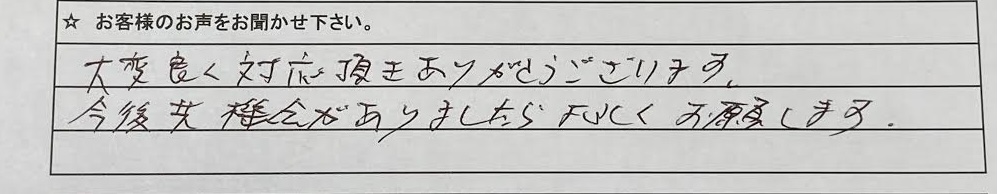 ☆ お客様のお声をお聞かせ下さい。
大変良く対応頂きありがとうございます。
今後共機会がありましたらよろしくお願します。